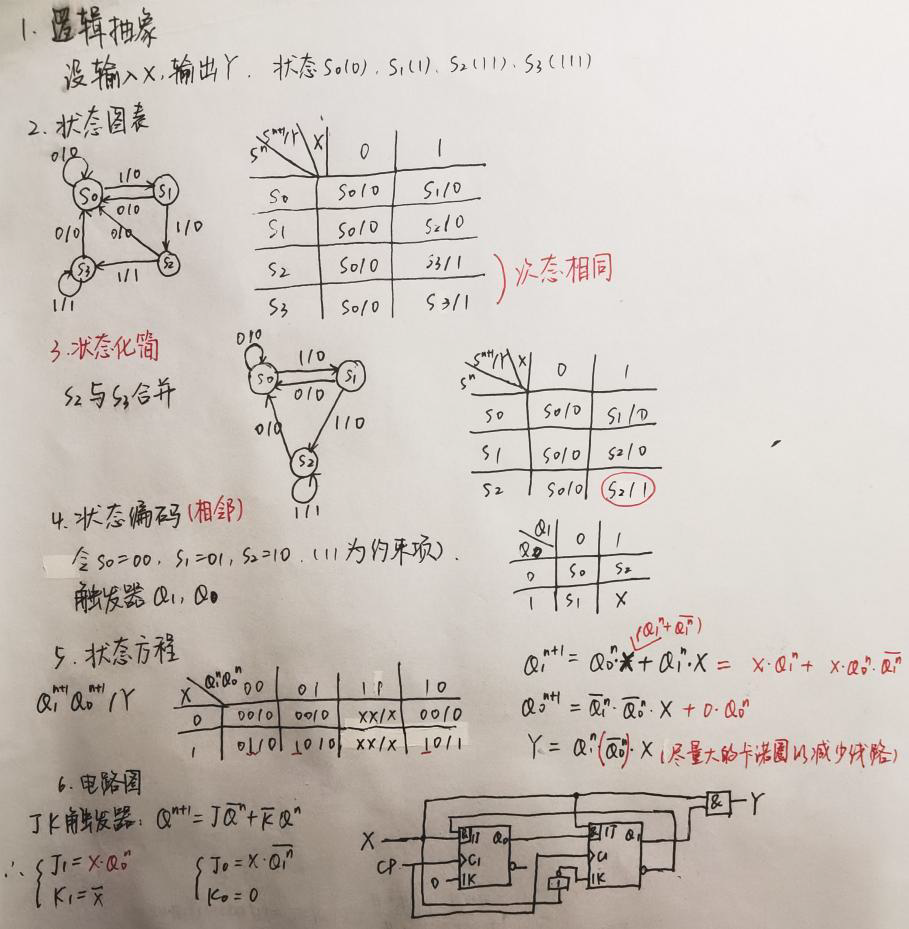 1. 逻辑抽象
设输入X,输出Y. 状态S0(0)、S1(1)、S2(11)、S3(111)
2. 状态图表
0/0
S0
1/0
S1
0/0
0/0
0/0
1/0
S3
1/1
S2
1/1
Sⁿ Sⁿ⁺¹/Y X 0 1
S0 S0/0 S1/0
S1 S0/0 S2/0
S2 S0/0 S3/1
S3 S0/0 S3/1
次态相同
3. 状态化简
S2与S3合并
0/0
S0
1/0
S1
0/0
0/0
1/0
S2
1/1
Sⁿ Sⁿ⁺¹/Y X 0 1
S0 S0/0 S1/0
S1 S0/0 S2/0
S2 S0/0 S2/1
4. 状态编码(相邻)
令S0=00, S1=01, S2=10. (11为约束项).
触发器Q1, Q0
Q0 Q1 0 1
0 S0 S2
1 S1 X
5. 状态方程
Q1ⁿ⁺¹ Q0ⁿ⁺¹/Y
X Q1ⁿQ0ⁿ 00 01 11 10
0 00/0 00/0 XX/X 00/0
1 01/0 10/0 XX/X 10/1
(Q1ⁿ+Q̅1ⁿ)
Q1ⁿ⁺¹ = Q0ⁿ·X + Q1ⁿ·X = X·Q1ⁿ + X·Q0ⁿ·Q̅1ⁿ
Q0ⁿ⁺¹ = Q̅1ⁿ·Q̅0ⁿ·X + 0·Q0ⁿ
Y = Q1ⁿ(Q̅0ⁿ)·X (尽量大的卡诺圈以减少线路)
6. 电路图
JK触发器: Qⁿ⁺¹ = JQ̅ⁿ + K̅Qⁿ
∴ { J1 = X·Q0ⁿ { J0 = X·Q̅1ⁿ
K1 = X̅ K0 = 0
& Y
X 1J Q0 1J Q1
CP C1 C1
0 1K 1 1K